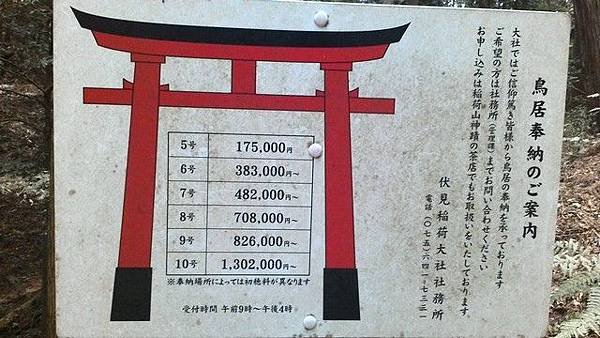 鳥居奉納のご案内
大社ではご信仰篤き皆様から鳥居の奉納を承っております
ご希望の方は社務所(管理課)までお問い合わせください
お申し込みは稲荷山神蹟の茶店でもお取扱いをいたしております。
伏見稲荷大社社務所
電話(〇七五)六四一-七三三一
5号 175,000円
6号 383,000円~
7号 482,000円~
8号 708,000円~
9号 826,000円~
10号 1,302,000円~
※奉納場所によっては初穂料が異なります
受付時間 午前9時~午後4時